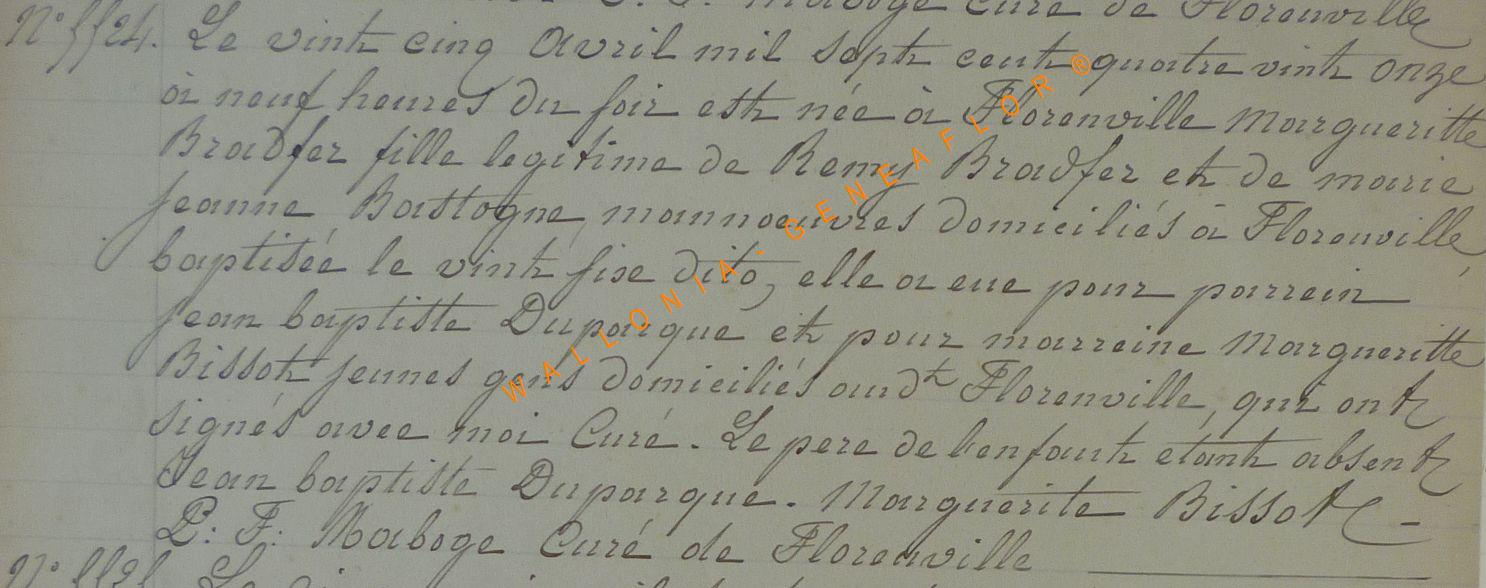 Maboge Curé de Florenville
N° 1124. Le vint cinq Avril mil sept cent quatre vint onze
à neuf heures du soir est née à Florenville Margueritte
Bradfer fille legitime de Remy Bradfer et de marie
jeanne Bastogne, mannoeuvres domiciliés à Florenville,
baptisée le vint sixe dito, elle a eue pour parrein
jean baptiste Duparque et pour marreine Margueritte
Bissot jeunes gens domiciliés aud.t Florenville, qui ont
signés avec moi Curé. Le pere de l'enfant etant absent
Jean baptiste Duparque. Marguerite Bissot -
P: F: Maboge Curé de Florenville
WALLONIA - GENEAFLOR ®